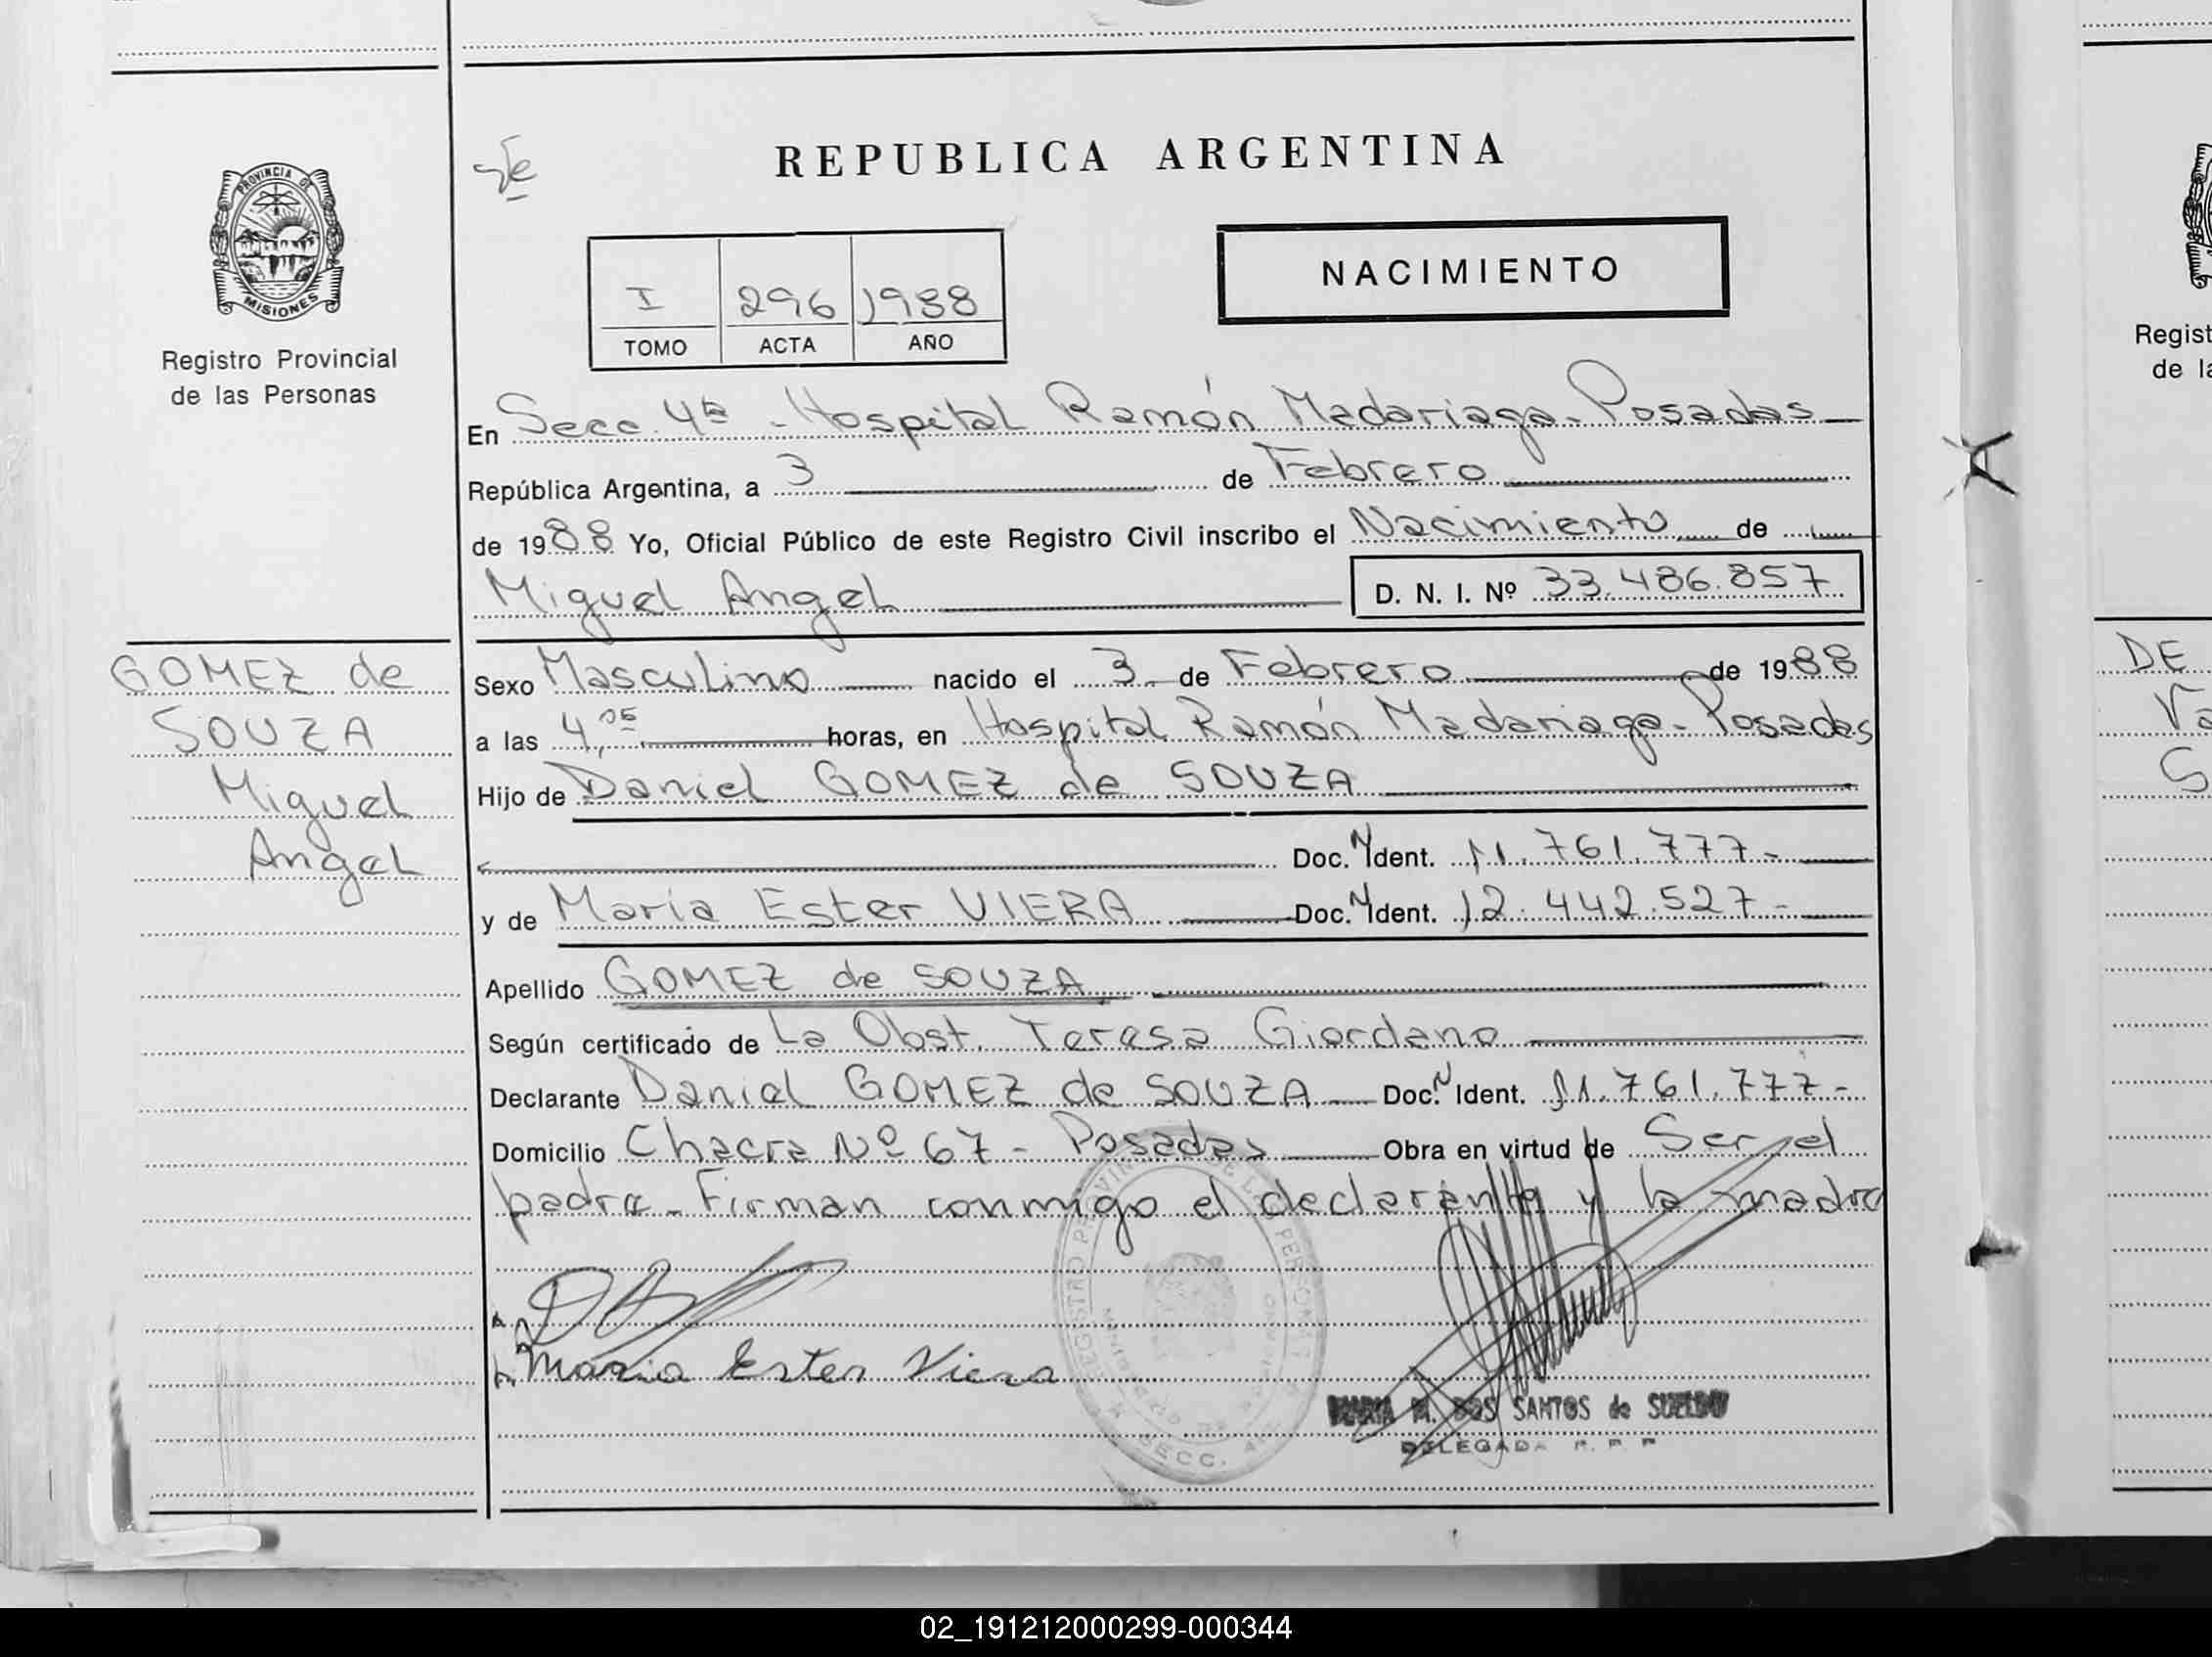 REPUBLICA ARGENTINA
PROVINCIA DE
MISIONES
Registro Provincial
de las Personas
NACIMIENTO
I 296 1988
TOMO ACTA AÑO
En Secc. 4ta - Hospital Ramón Madariaga - Posadas
República Argentina, a 3 de Febrero
de 1988 Yo, Oficial Público de este Registro Civil inscribo el Nacimiento de
Miguel Angel D. N. I. Nº 33.486.857
GOMEZ de
SOUZA
Miguel
Angel
Sexo Masculino nacido el 3 de Febrero de 1988
a las 4,05 horas, en Hospital Ramón Madariaga - Posadas
Hijo de Daniel GOMEZ de SOUZA
Doc. N Ident. 11.761.777-
y de María Ester VIERA Doc. N Ident. 12.442.527-
Apellido GOMEZ de SOUZA
Según certificado de La Obst. Teresa Giordano
Declarante Daniel GOMEZ de SOUZA Doc. N Ident. 11.761.777-
Domicilio Chacra Nº 67 - Posadas Obra en virtud de Ser el
padre - Firman conmigo el declarante y la madre
Maria Ester Viera
REGISTRO PROVINCIAL DE LAS PERSONAS
SECC. 4ta
MARIA M. DOS SANTOS de SUELDO
DELEGADA
Regist
de la
DE
Va
S
02_191212000299-000344